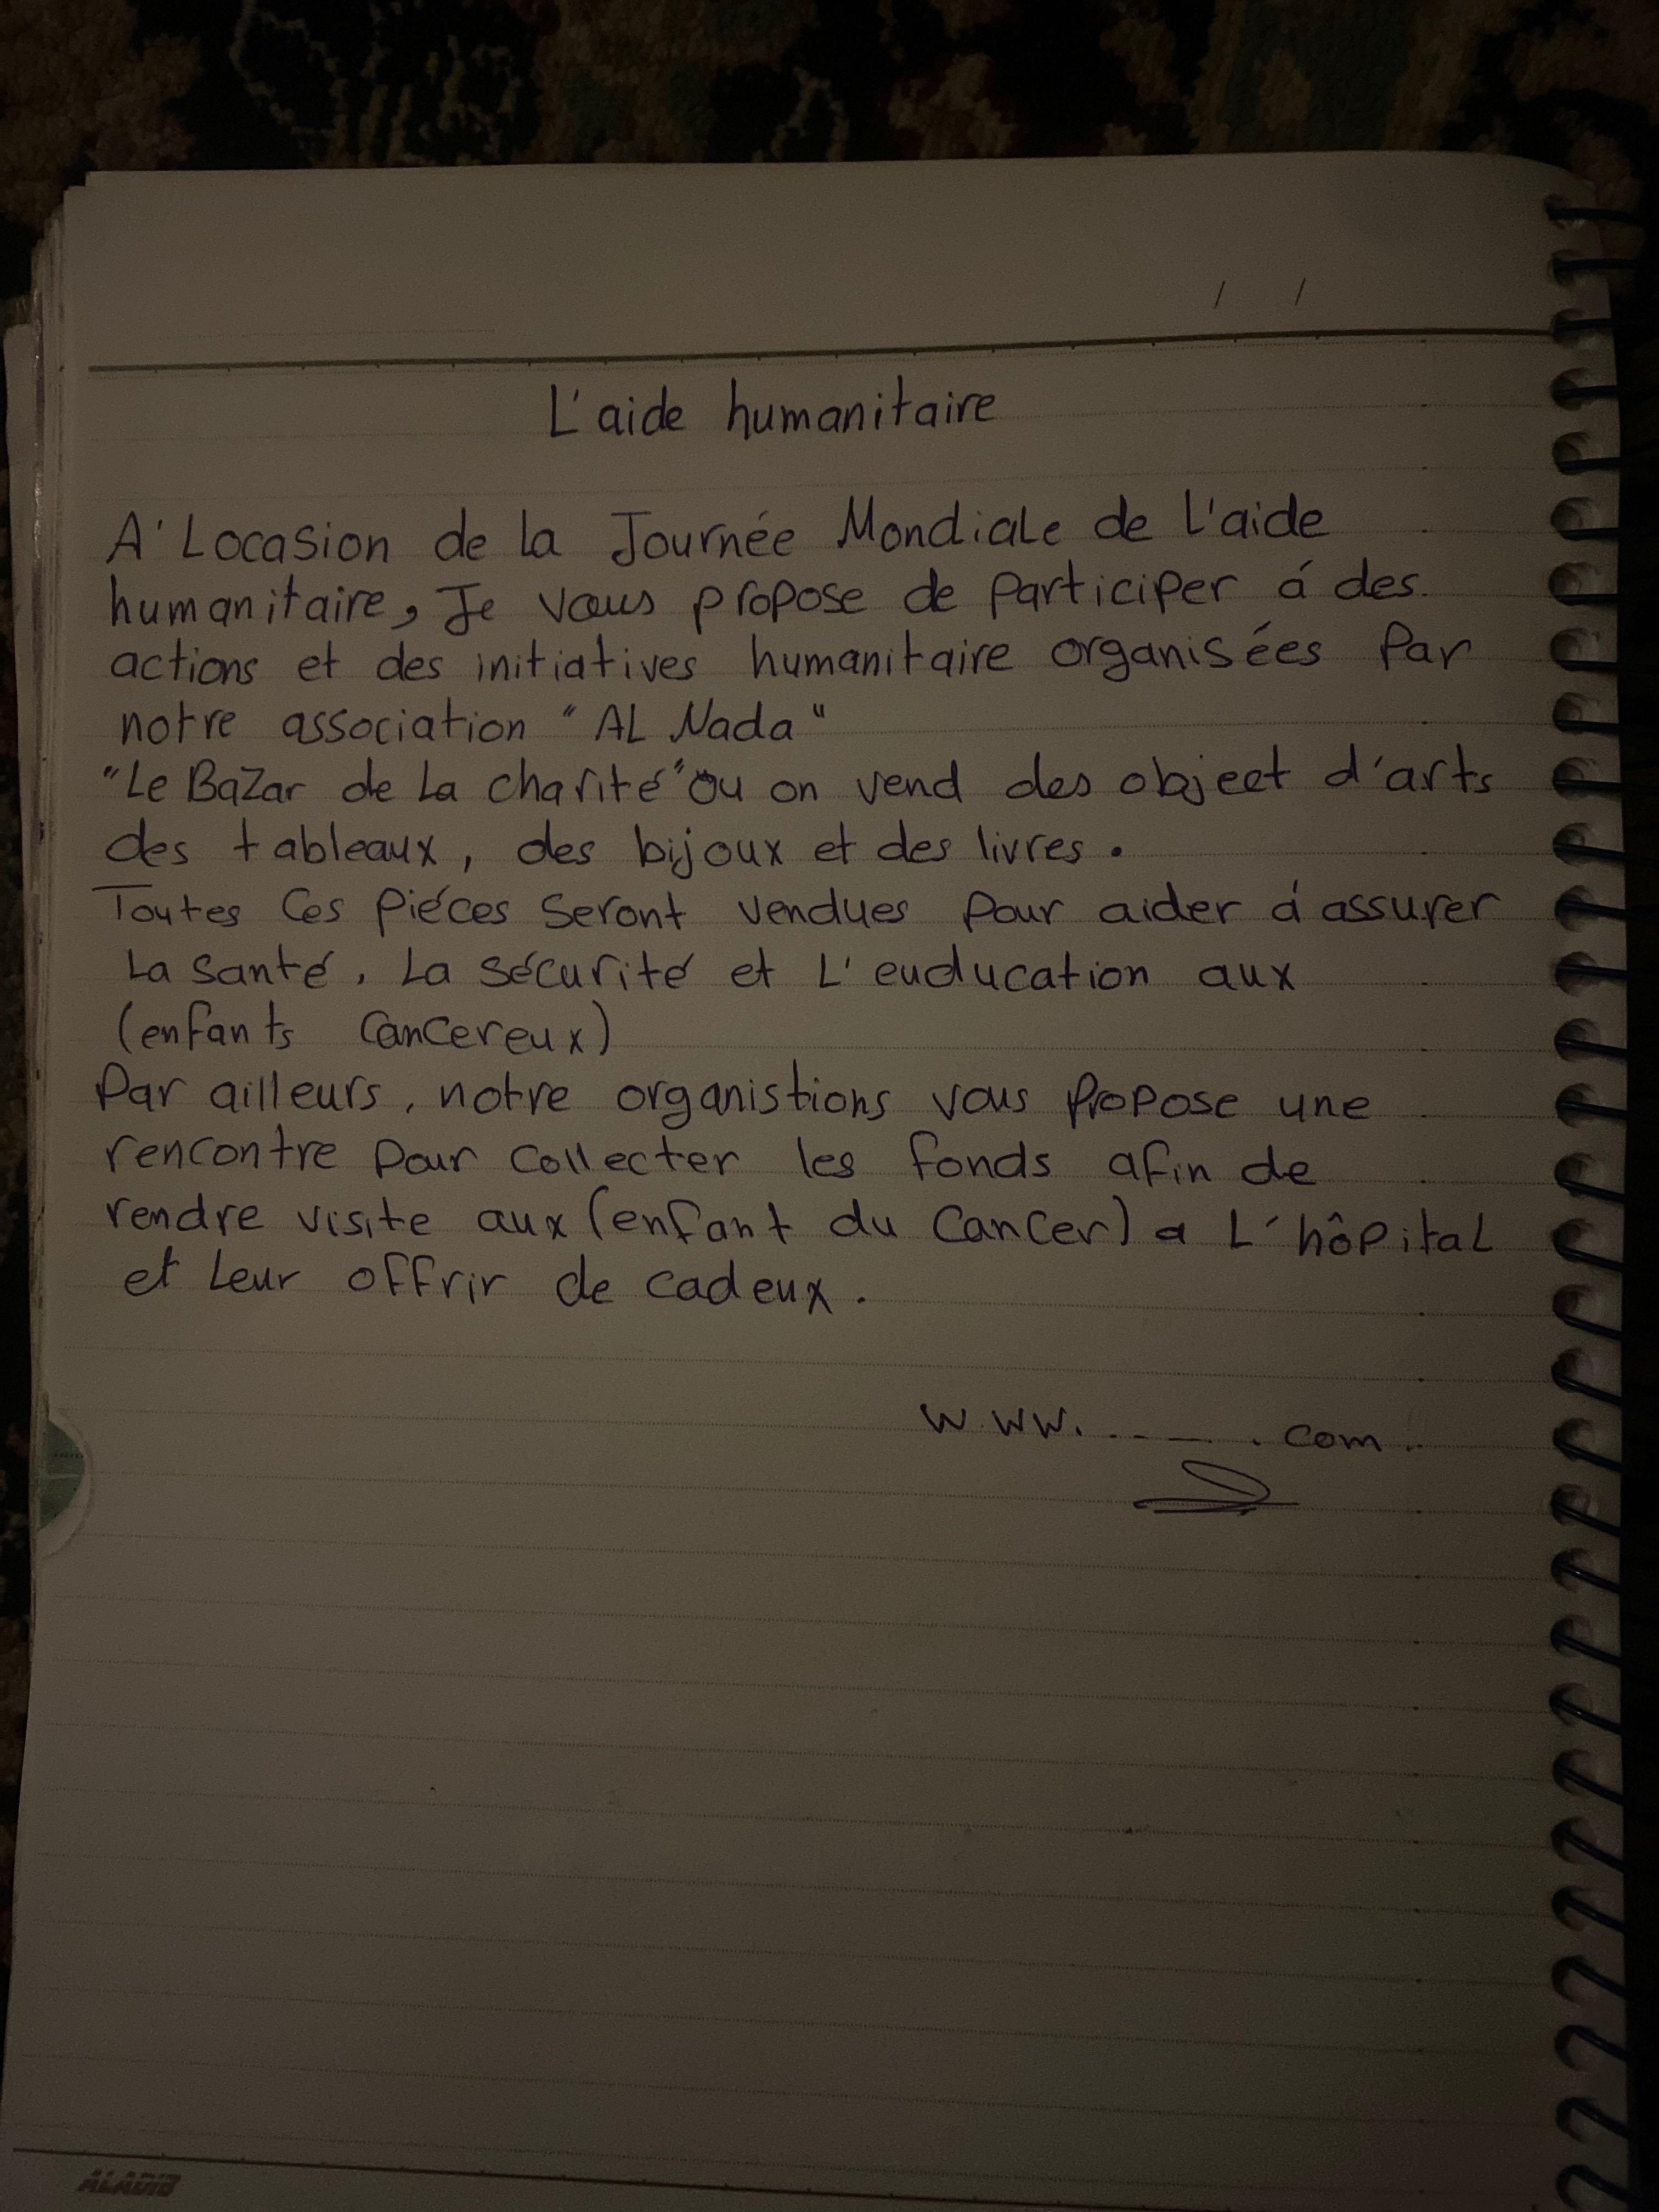 / /
L'aide humanitaire
A' Locasion de la Journée Mondiale de l'aide
humanitaire, Je vous propose de participer á des
actions et des initiatives humanitaire organisées Par
notre association "AL Nada"
"Le Bazar de La charité" Ou on vend des objeet d'arts
des tableaux, des bijoux et des livres.
Toutes Ces Piéces Seront vendues Pour aider á assurer
La Santé, La Sécurité et L'euducation aux
(enfants Cancereux)
Par ailleurs, notre organistions vous Propose une
rencontre Pour Collecter les fonds afin de
rendre visite aux (enfant du Cancer) a L'hôpital
et Leur offrir de cadeux.
www. ..... .com.
ALADIB